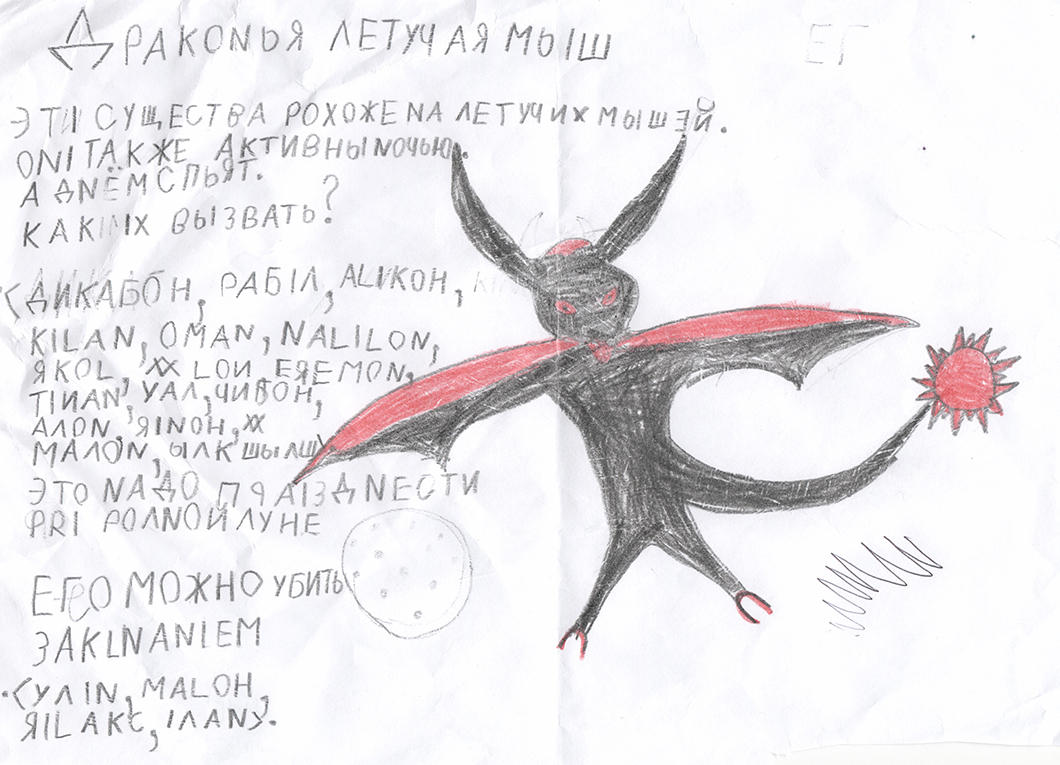 ДРАКОNЬЯ ЛЕТУЧАЯ МЫШ
ЕГ
ЭТИ СУЩЕСТВА РОХОЖЕ NА ЛЕТУЧИХ МЫШЭЙ.
ОNI ТАКЖЕ АКТИВНЫ NОЧЬЮ.
А ДNЁМ СПЬЯТ.
КАК ИХ ВЫЗВАТЬ?
<ДИКАБОН, РАБІЛ, ALIKOH,
KILAN, OMAN, NALILON,
ЯKOL, LON, EREMON,
TINAN, УАЛ, ЧИВОН,
АЛОN, ЯINOH,
MAЛON, ЫЛК ШЫЛШ>
ЭТО NАДО ПЯАІЗДNЕСТИ
PRI POЛNОЙ ЛУНЕ
ЕГО МОЖНО УБИТЬ
ЗАКLINANIEM
<УЛIN, MALOH,
ЯIL AKC, IЛАN>.